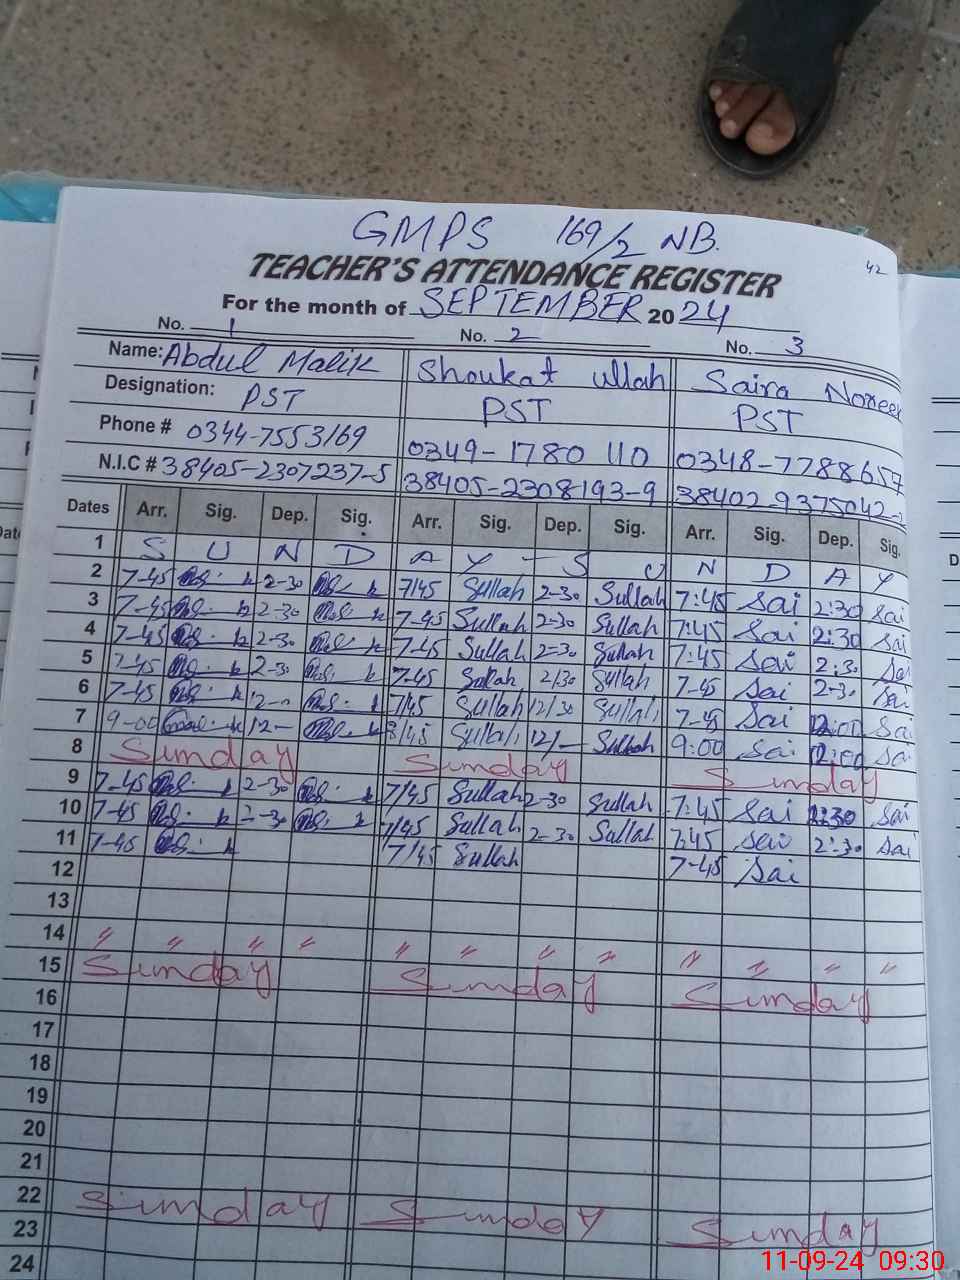 GMPS 169/2 NB.
42
TEACHER'S ATTENDANCE REGISTER
For the month of SEPTEMBER 2024
No. 1 No. 2 No. 3
Name: Abdul Malik Shoukat ullah Saira Noreen
Designation: PST PST PST
Phone # 0344-7553169 0349-1780110 0348-7788657
N.I.C # 38405-2307237-5 38405-2308193-9 38402-9375042-
Dates Arr. Sig. Dep. Sig. Arr. Sig. Dep. Sig. Arr. Sig. Dep. Sig.
1 S U N D A Y - S U N D A Y
2 7-45 2-30 7/45 Sullah 2-30 Sullah 7:45 Sai 2:30 Sai
3 7-45 2-30 7-45 Sullah 2-30 Sullah 7:45 Sai 2:30 Sai
4 7-45 2-30 7-45 Sullah 2-30 Sullah 7:45 Sai 2:30 Sai
5 7-45 2-30 7-45 Sullah 2/30 Sullah 7-45 Sai 2-30 Sai
6 7-45 7/45 Sullah 12/30 Sullah 7-45 Sai 12:00 Sai
7 9-00 12- 8/45 Sullah 12/- Sullah 9:00 Sai 12:00 Sai
8 Sunday Sunday Sunday
9 7-45 2-30 7/45 Sullah 2-30 Sullah 7:45 Sai 2:30 Sai
10 7-45 2-30 7/45 Sullah 2-30 Sullah 7:45 Sai 2:30 Sai
11 7-45 7/45 Sullah 7-45 Sai
12
13
14 〃 〃 〃 〃 〃 〃 〃 〃 〃 〃 〃 〃
15 Sunday Sunday Sunday
16
17
18
19
20
21
22 Sunday Sunday Sunday
23
24
11-09-24 09:30